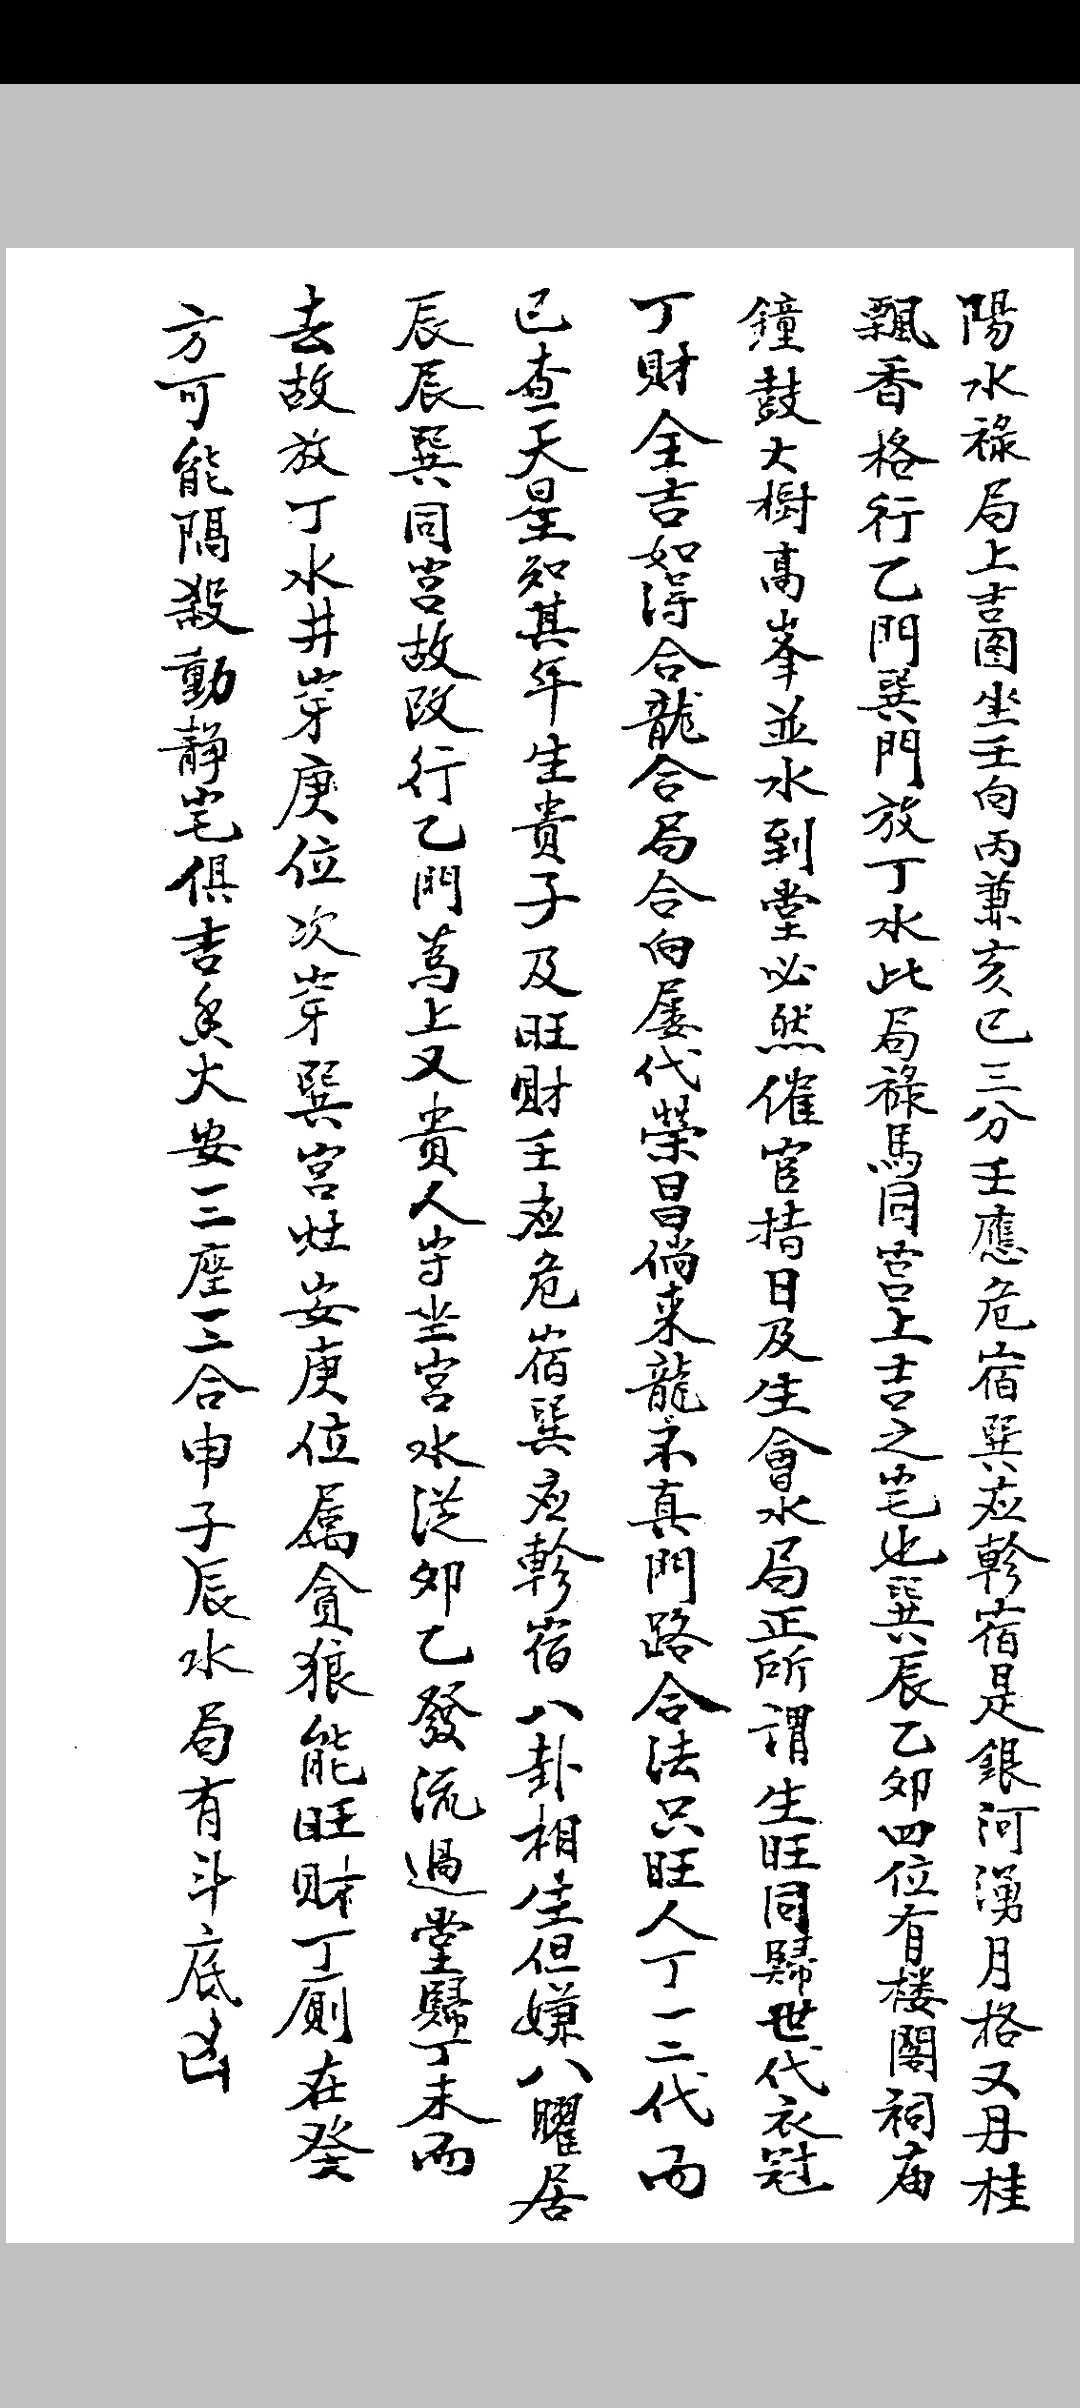 陽水祿局上吉图坐壬向丙兼亥巳三分壬應危宿巽应軫宿是銀河湧月格又丹桂
飄香格行乙門巽門放丁水此局祿馬同宫上吉之宅也巽辰乙卯四位有楼閣祠庙
鐘鼓大樹高峯並水到堂必然催官掿日及生會水局正所謂生旺同歸世代衣冠
丁財全吉如得合龍合局合向屡代榮昌倘来龍不真門路合法只旺人丁一二代而
已查天星知其年生貴子及旺財壬应危宿巽应軫宿八卦相生但嫌八曜居
辰辰巽同宫故改行乙門爲上又貴人守坐宫水從卯乙發流過堂歸丁未而
去故放丁水井穿庚位次穿巽宫灶安庚位属貪狼能旺財丁厠在癸
方可能隔殺動静宅俱吉香火安三座三合申子辰水局有斗底凶